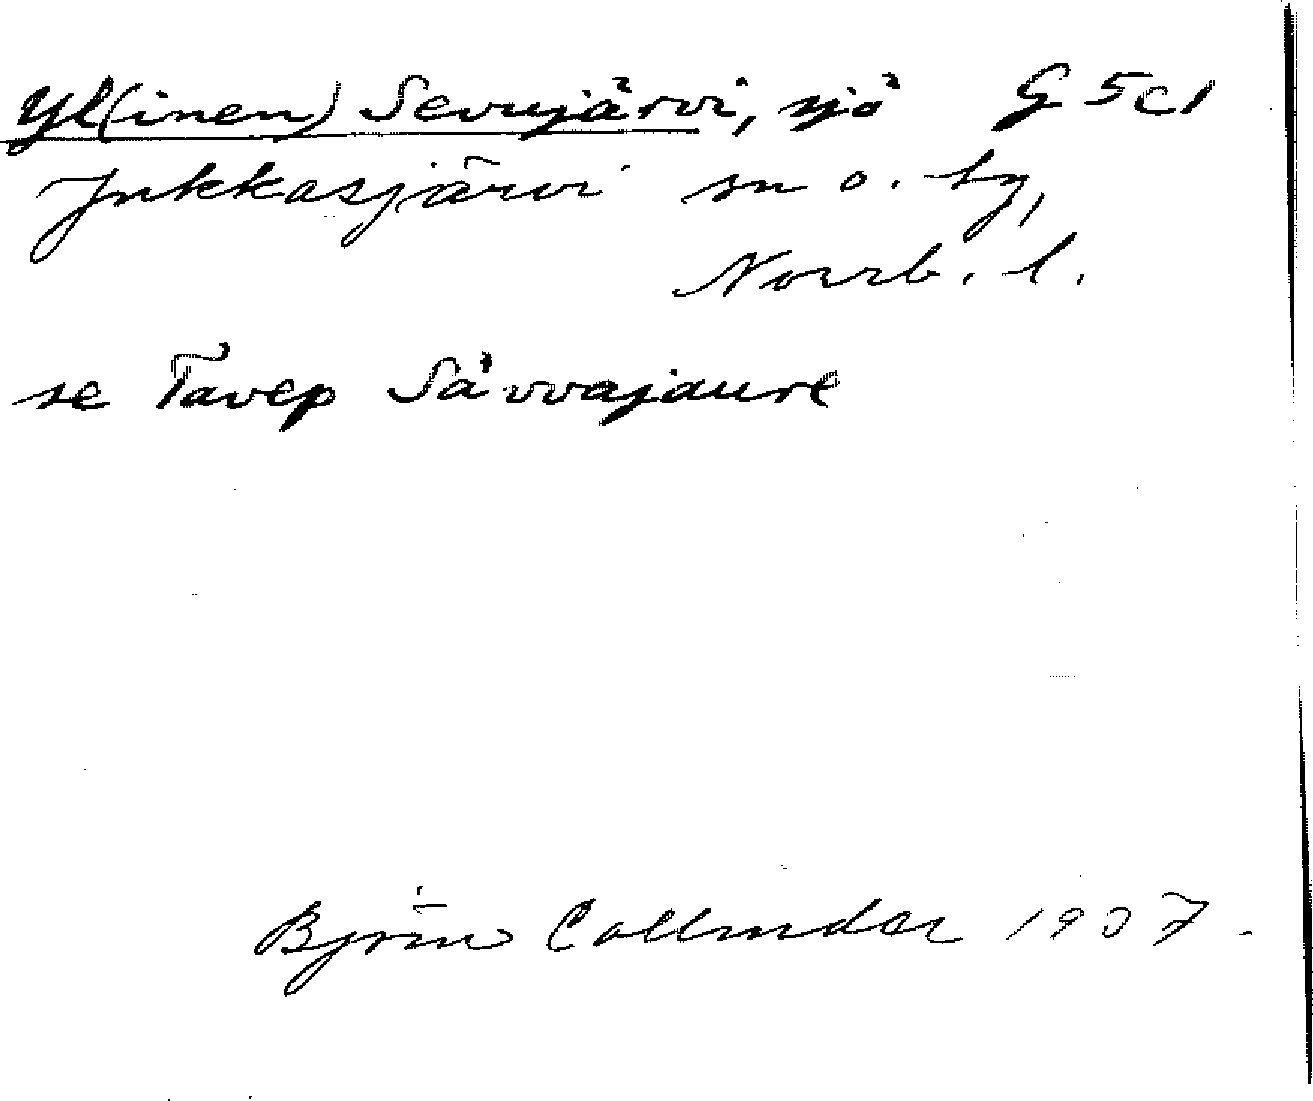 Yl(inen) Sevujärvi, sjö G 5 c1
Jukkasjärvi sn o. by,
Norrb. l.
se Tavep Sávvajaure
Björn Collinder 1937.